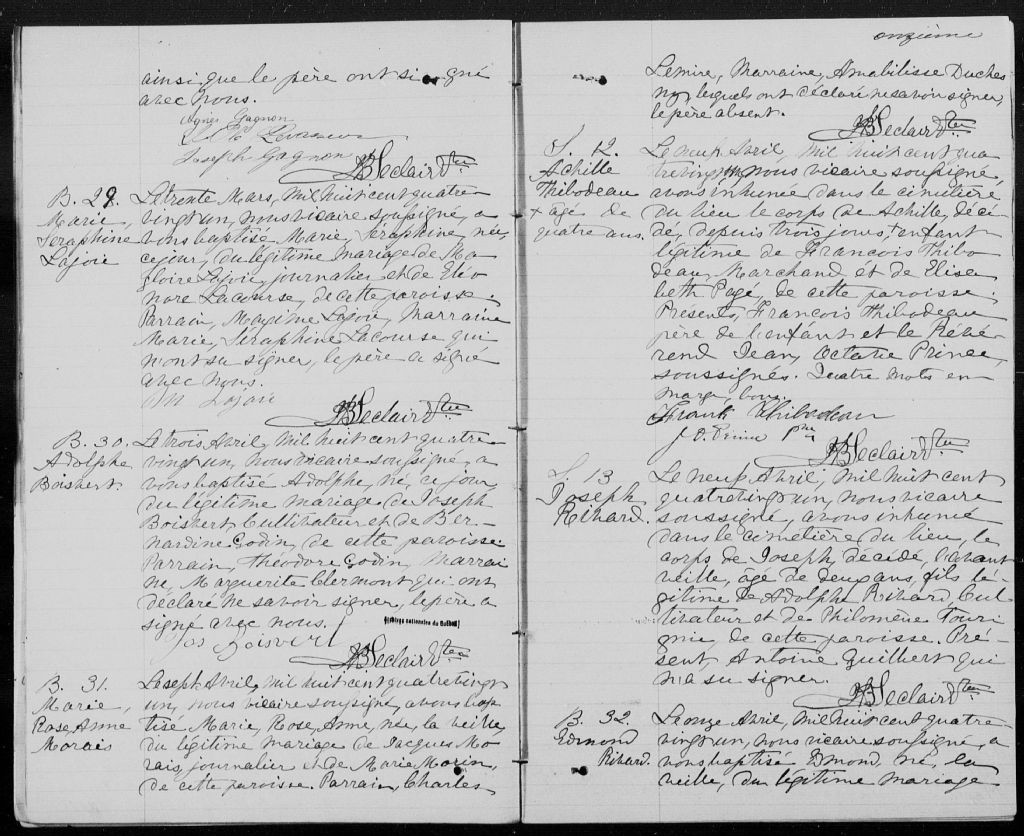 ainsi que le père ont signé
avec nous.
Agnes Gagnon
Joseph Gagnon
JBLeclair Vtre
B. 29.
Marie,
Seraphine
Lajoie
Le trente Mars, Mil huit cent quatre
vingt un, nous vicaire soussigné, a
vons baptisé Marie, Seraphine, née,
ce jour, du légitime mariage de Ma
gloire Lajoie, journalier et de Eléo
nore Lacourse, de cette paroisse.
Parrain, Maxime Lajoie, Marraine
Marie, Séraphine Lacourse qui
n'ont su signer, le père a signé
avec nous.
M Lajoie
JBLeclair Vtre
B. 30.
Adolphe
Boisvert.
Le trois Avril, Mil huit cent quatre
vingt un, nous vicaire soussigné, a
vons baptisé Adolphe, né, ce jour
du légitime mariage de Joseph
Boisvert Cultivateur et de Ber-
nardine Godin, de cette paroisse.
Parrain, Théodore Godin, Marrai
ne, Marguerite Clermont qui ont
déclaré ne savoir signer, le père a
signé avec nous.
Archives nationales du Québec
Jos Boisvert
JBLeclair Vtre
B. 31.
Marie,
Rose, Anne
Morais
Le sept Avril, Mil huit cent quatrevingt
un, nous vicaire soussigné, avons bap
tisé Marie, Rose, Anne, née, la veille,
du légitime mariage de Jacques Mo
rais, journalier et de Marie Morin,
de cette paroisse. Parrain, Charles
onzième
Lemire, Marraine, Amabilisse Duches
ny, lesquels ont déclaré ne savoir signer,
le père absent.
JBLeclair Vtre
S. 12.
Achille
Thibodeau
+ âgé de
quatre ans.
Le neuf Avril, Mil huit cent qua
trevingt un, nous vicaire soussigné,
avons inhumé dans le cimetière
du lieu le corps de Achille, décé
dé, depuis trois jours, + enfant
légitime de Francois Thibo
deau, Marchand et de Elisa
beth Pagé, de cette paroisse.
Présents, Francois Thibodeau
père de l'enfant et le Révé
rend Jean, Octave Prince,
soussignés. Quatre mots en
marge, bons.
Frank Thibodeau
J. O. Prince ptre
JBLeclair Vtre
S. 13
Joseph
Rihard.
Le neuf Avril, Mil huit cent
quatrevingt un, nous vicaire
soussigné, avons inhumé
dans le cimetière du lieu, le
corps de Joseph, décédé, l'avant
veille, âgé de deux ans, fils lé-
gitime de Adolphe Rihard, Cul
tivateur et de Philomène Fourn
mie, de cette paroisse. Pré-
sent, Antoine Guilbert qui
n'a su signer.
JBLeclair Vtre
B. 32.
Edmond
Rihard.
Le onze Avril, Mil huit cent quatre-
vingt un, nous vicaire soussigné, a
vons baptisé Edmond, né, la
veille, du légitime mariage